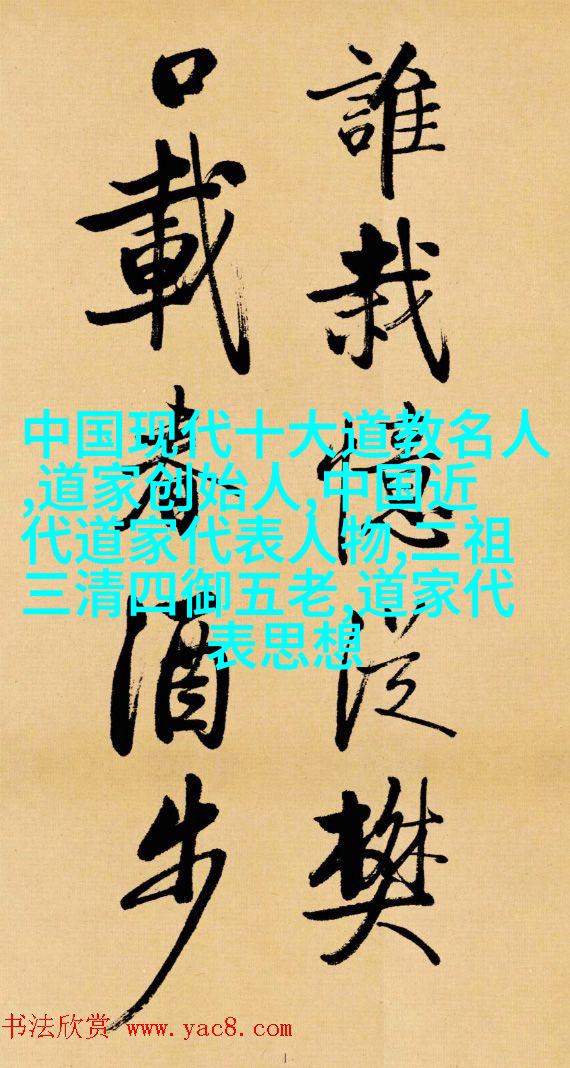 誰栽憶從樊
口載春酒步
中国现代十大道教名人
,道家创始人,中国近
代道家代表人物,二祖
三清四御五老,道家代
表思想
书法欣赏 www.yac8.com